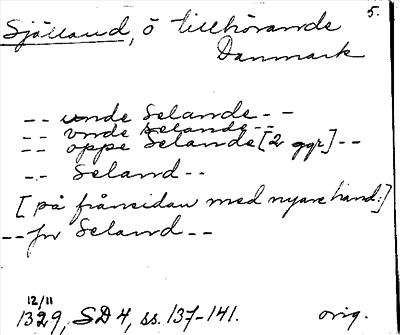 5.
Själland, ö tillhörande
Danmark
-- unde Selande --
-- vnde Selande --
-- oppe Selande [2 ggr] --
-- Seland --
[på frånsidan med nyare hand:]
-- fr Seland --
12/11
1329, SD 4, ss. 137-141. orig.